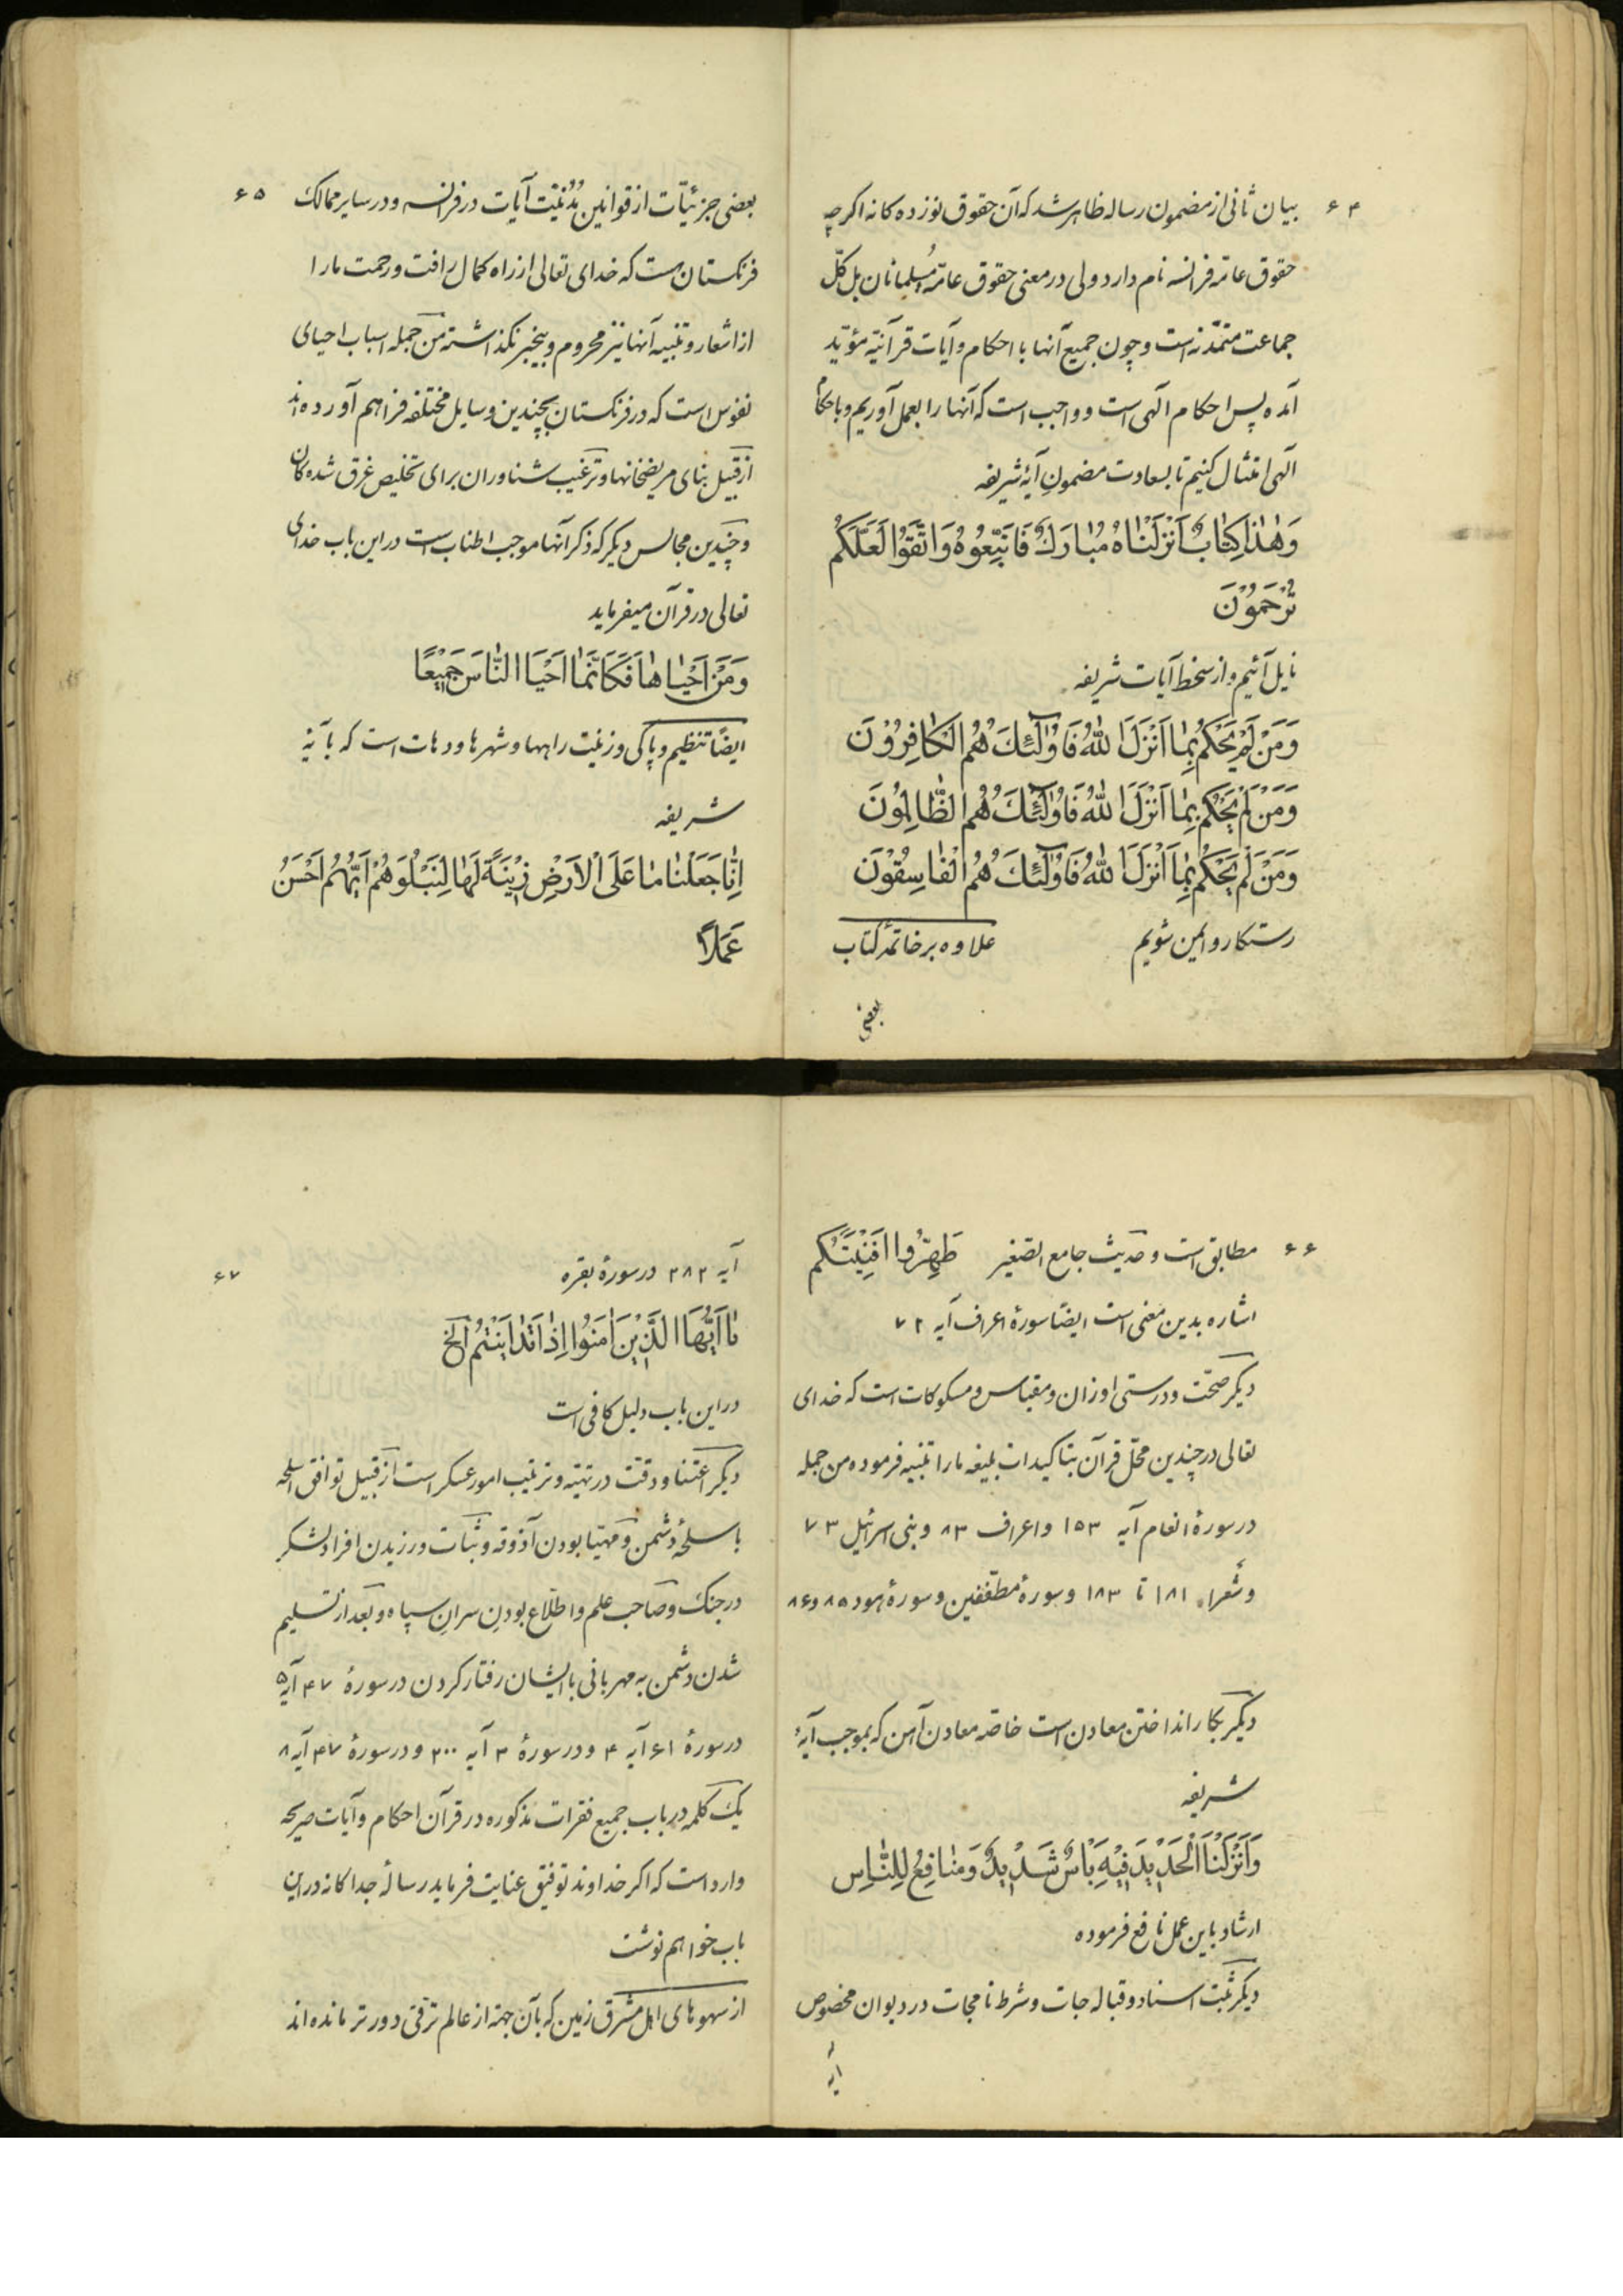 ۶۴
بیان ثانی از مضمون رساله ظاهر شد که آن حقوق نوزده کانه اکرچه
حقوق عامّه فرانسه نام دارد ولی در معنی حقوق عامّهٔ مُسلمانان بل کلّ
جماعت متمدّنه است و چون جمیع آنها با احکام و آیات قرآنیّه مؤیّد
آمده پس احکام الٓهی است و واجب است که آنها را بعمل آوریم و باحکام
الٓهی امتثال کنیم تا بسعادت مضمونِ آیهٔ شریفه
وَهٰذا کِتٰابٌ اَنْزَلْنٰاهُ مُبٰارَكٌ فَاتَّبِعُوهُ وَاتَّقَوُا لَعَلَّکُمْ
تُرْحَمُوُنَ
نایل آئیم و از سخط آیات شریفه
وَمَنْ لَمْ یَحْکُمْ بِمٰا اَنْزَلَ اللّٰهُ فَاوُلٰٓئِكَ هُمُ الْکٰافِرُوُنَ
وَمَنْ لَمْ یَحْکُمْ بِمٰا اَنْزَلَ اللّٰهُ فَاوُلٰٓئِكَ هُمُ الظّٰالِمُوُنَ
وَمَنْ لَمْ یَحْکُمْ بِمٰا اَنْزَلَ اللّٰهُ فَاوُلٰٓئِكَ هُمُ الْفٰاسِقُوُنَ
رستکار و ایمن شویم علاوه بر خاتمهٔ کتاب
بعضی
۶۵
بعضی جزئیّات از قوانین مَدَنیّت آیات در فرانسه و در سایر ممالک
فرنکستان هست که خدای تعالی از راه کمال رافت و رحمت ما را
از اشعار و تنبیه آنها نیز محروم و بیخبر نکذاشته من جمله اسباب احیای
نفوس است که در فرنکستان بچندین وسایل مختلفه فراهم آورده اند
از قبیل بنای مریضخانها و ترغیب شناوران برای تخلیص غرق شده کان
و چندین مجالس دیکر که ذکر آنها موجب اطناب است در این باب خدای
تعالی در قرآن میفرماید
وَمَنْ اَحْیٰاهٰا فَکَاَنَّمٰا اَحْیَا النّٰاسَ جَمیٖعًا
ایضًا تنظیم و پاکی و زینت راهها و شهرها و دهات است که با آیهٔ
شریفه
اِنّٰا جَعَلْنٰا مٰا عَلَی الْاَرْضِ زیٖنَةً لَهٰا لِنَبْلُوَهُمْ اَیُّهُمْ اَحْسَنُ
عَمَلاً
۶۶
مطابق است و حدیث جامع الصّغیر طَهِّرُوا اَفْنِیَتَکُم
اشاره بدین معنی است ایضًا سورهٔ اعراف آیه ۷۲
دیکر صحّت و درستی اوزان و مقیاس و مسکوکات است که خدای
تعالی در چندین محلّ قرآن بتاکیدات بلیغه ما را تنبیه فرموده من جمله
در سورهٔ انعام آیه ۱۵۳ و اعراف ۸۳ و بنی اسرائیل ۷۳
و شعراء ۱۸۱ تا ۱۸۳ و سورهٔ مطفّفین و سورهٔ هود ۸۵ و ۸۶
دیکر بکار انداختن معادن است خاصّه معادن آهن که بموجب آیهٔ
شریفه
وَاَنْزَلْنَا الْحَدیٖدَ فیٖهِ بَاْسٌ شَدیٖدٌ وَمَنٰافِعُ لِلنّٰاسِ
ارشاد باین عمل نافع فرموده
دیکر ثبت اسناد و قباله جات و شرط نامجات در دیوان مخصوص
آیه
۶۷
آیه ۲۸۲ در سورهٔ بقره
یٰا اَیُّهَا الَّذیٖنَ اٰمَنُوا اِذٰا تَدٰایَنْتُمْ الخ
در این باب دلیل کافی است
دیکر اعتنا و دقّت در تهیّه و ترتیب امور عسکر است از قبیل توافق اسلحه
با سلحهٔ دشمن و مهیّا بودن آذوقه و ثبات ورزیدن افراد لشکر
در جنک و صاحب علم و اطّلاع بودن سران سپاه و بعد از تسلیم
شدن دشمن به مهربانی با ایشان رفتار کردن در سورهٔ ۴۷ آیه ۵
در سورهٔ ۶۱ آیه ۴ و در سورهٔ ۳ آیه ۲۰۰ و در سورهٔ ۴۷ آیه ۸
یک کلمه در باب جمیع فقرات مذکوره در قرآن احکام و آیات صریحه
وارد است که اکر خداوند توفیق عنایت فرماید رسالهٔ جداکانه در این
باب خواهم نوشت
از سهوهای اهل مشرق زمین که بآن جهة از عالم ترقّی دورتر مانده اند